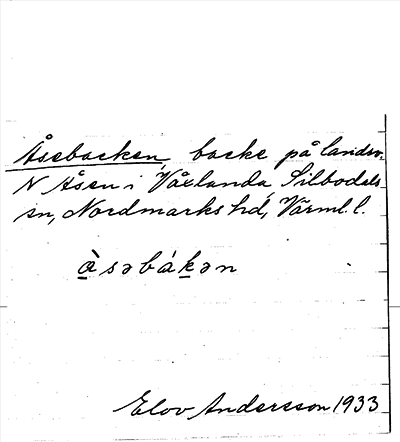 Åsebacken, backe på landsv.
N Åsen i Våxlanda, Silbodals
sn, Nordmarks hd, Värml. l.
å̀səbákən
Elov Andersson 1933